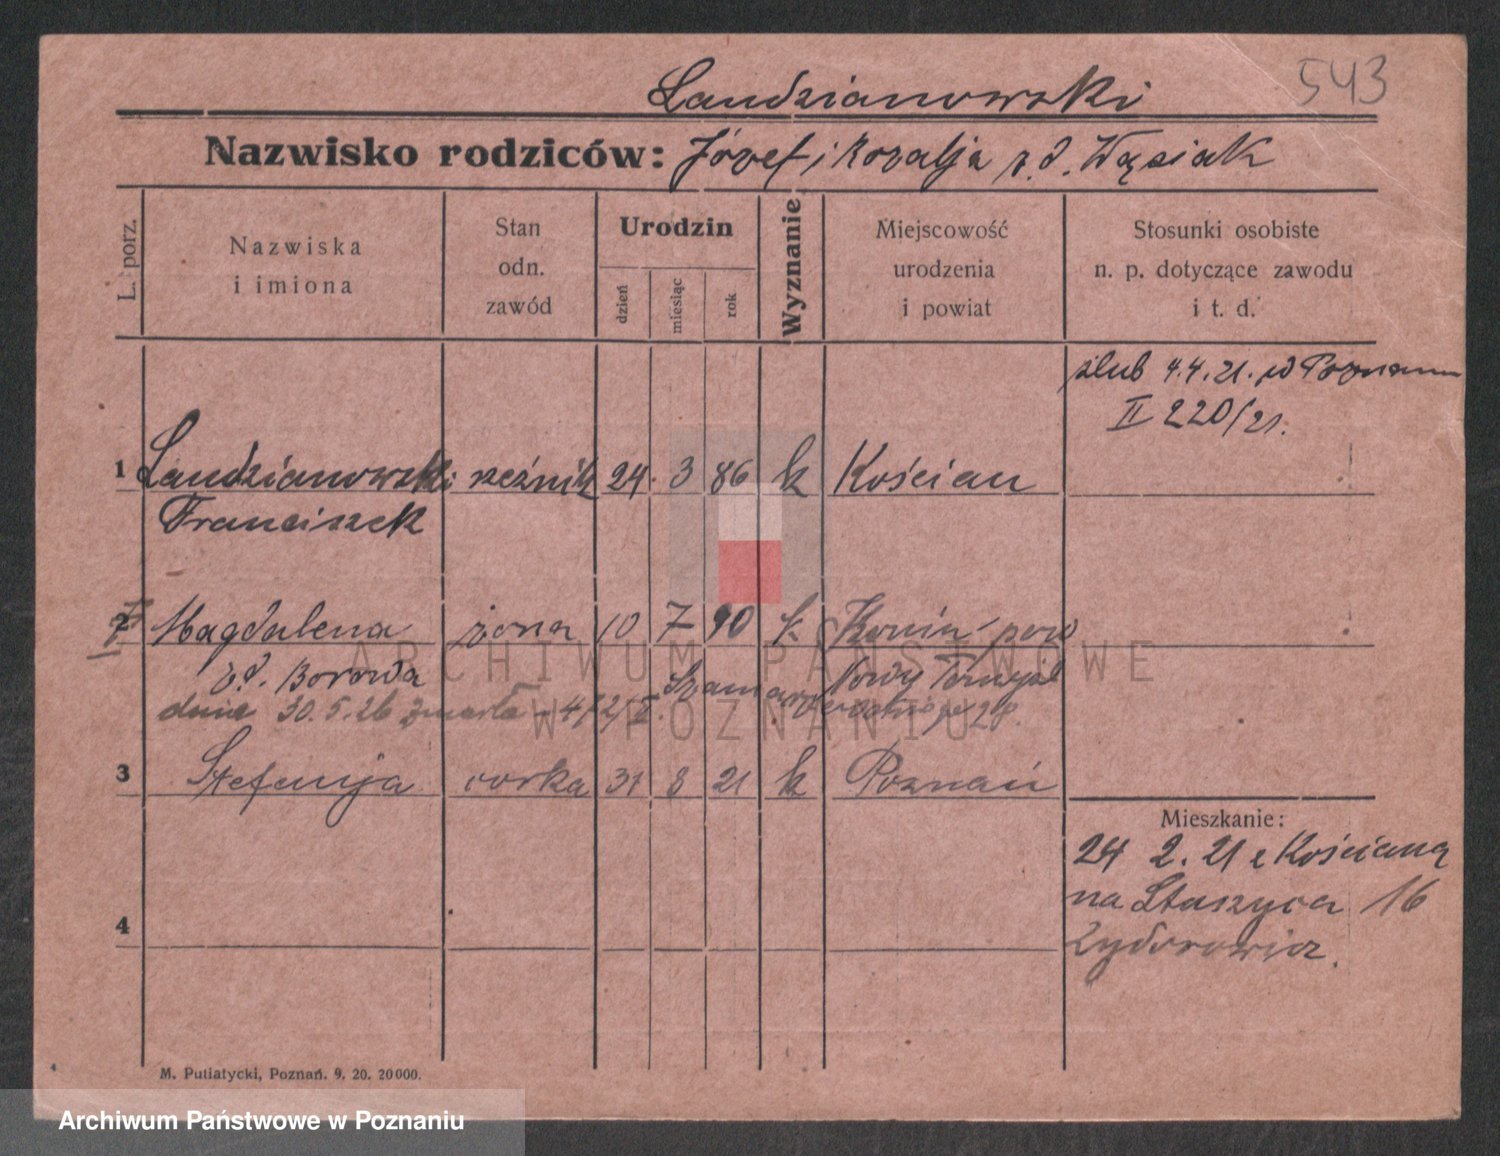 543
Landzianowski
Nazwisko rodziców: Józef i Rozalja z. d. Wąsiak
L. porz.
Nazwiska
i imiona
Stan
odn.
zawód
Urodzin
dzień
miesiąc
rok
Wyznanie
Miejscowość
urodzenia
i powiat
Stosunki osobiste
n. p. dotyczące zawodu
i t. d.
ślub 4.4.21. w Poznaniu
II 220/21.
1 Landzianowski rzeźnik 24. 3 86 k Kościan
Franciszek
2 Magdalena żona 10 7 90 k Konin pow
z d. Borowa Nowy Tomyśl
dnia 30.5.26 zmarła
3 Stefanja córka 31 8 21 k Poznań
Mieszkanie:
24 2. 21 z Kościana
na Staszyca 16
4
M. Putiatycki, Poznań. 9. 20. 20000.
ARCHIWUM PAŃSTWOWE
W POZNANIU
Archiwum Państwowe w Poznaniu